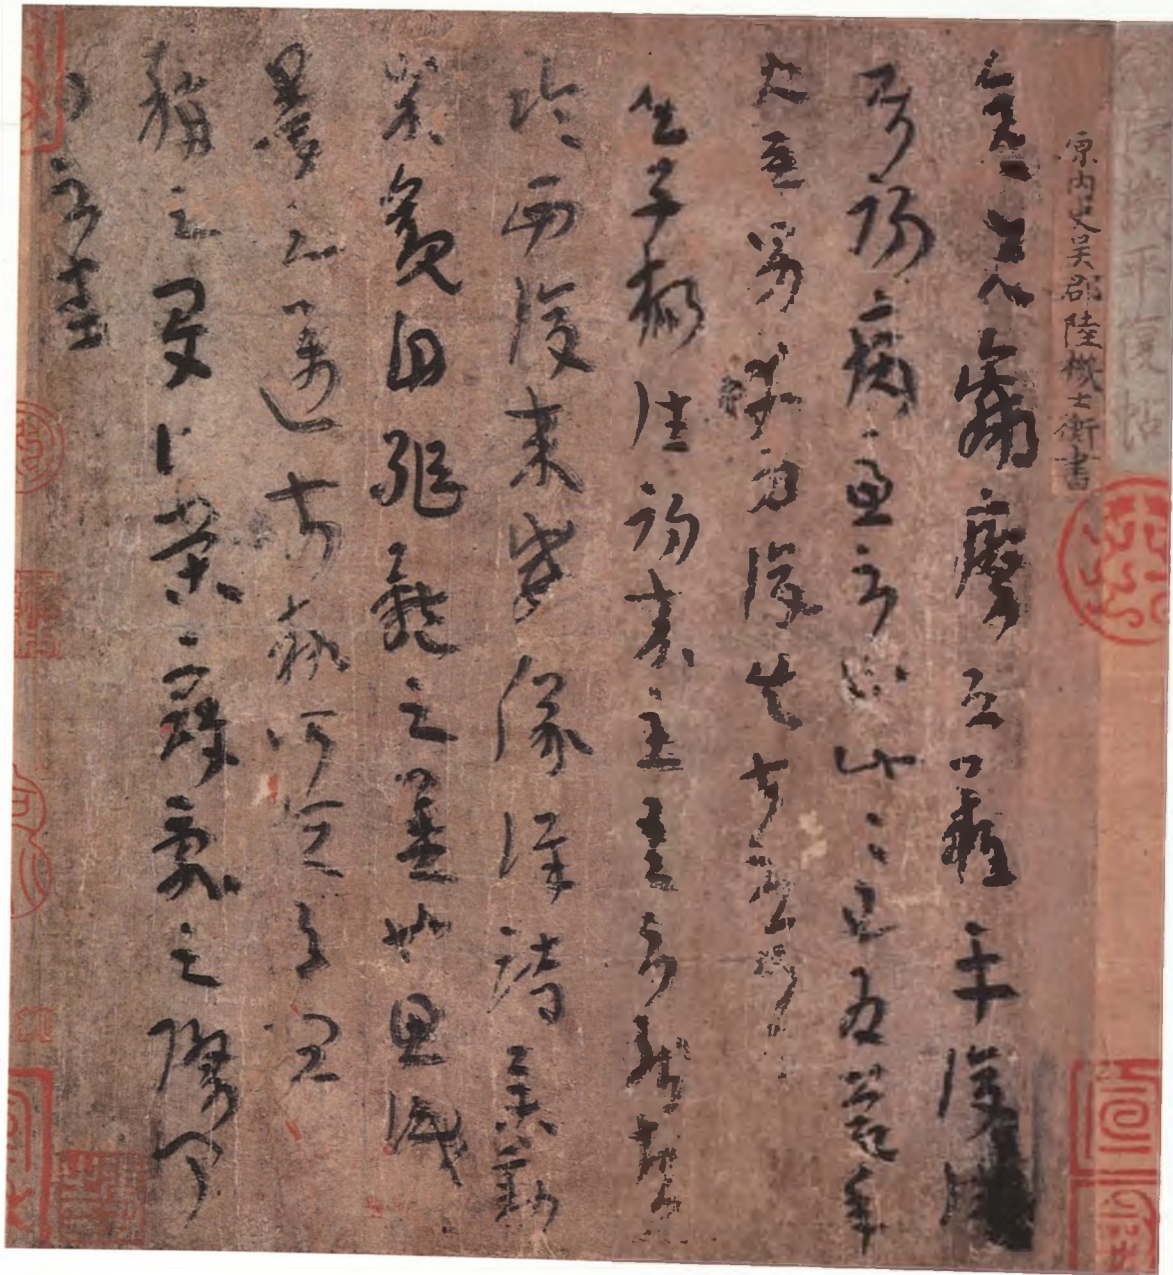 陸機平復帖
原內史吳郡陸機士衡書
彦先羸瘵恐難平復往
屬初病慮不止此此已為慶承
使唯男幸為復失前憂耳
吳子楊往初來主吾不能盡
臨西復來威儀詳跱舉動
成觀自軀體之美也思識
量之邁前執所恒有宜
稱之夏伯榮寇亂之際聞
問不悉